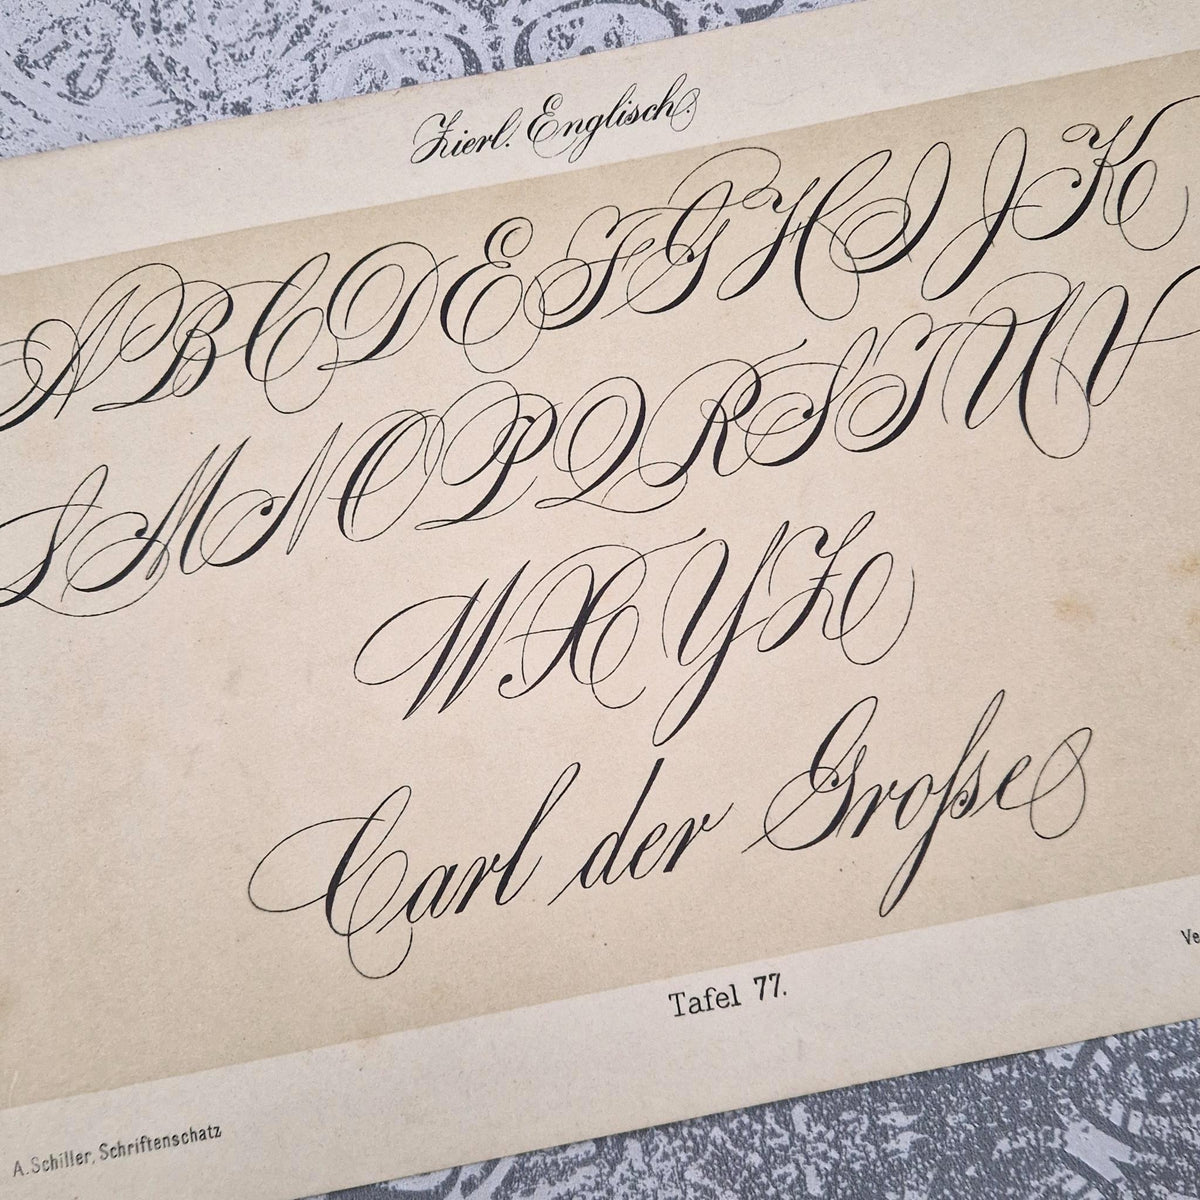 Zierl. Englisch.
A B C D E F G H I J K
L M N O P Q R S T U V
W X Y Z
Carl der Große
Tafel 77.
A. Schiller, Schriftenschatz